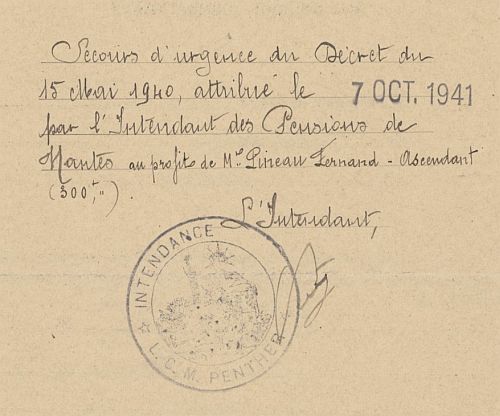 Secours d'urgence du Décret du
15 Mai 1940, attribué le 7 OCT. 1941
par l'Intendant des Pensions de
Nantes au profit de Mr Pineau Fernand - Ascendant
(300f,").
L'Intendant,
INTENDANCE
L. C. M. PENTHER